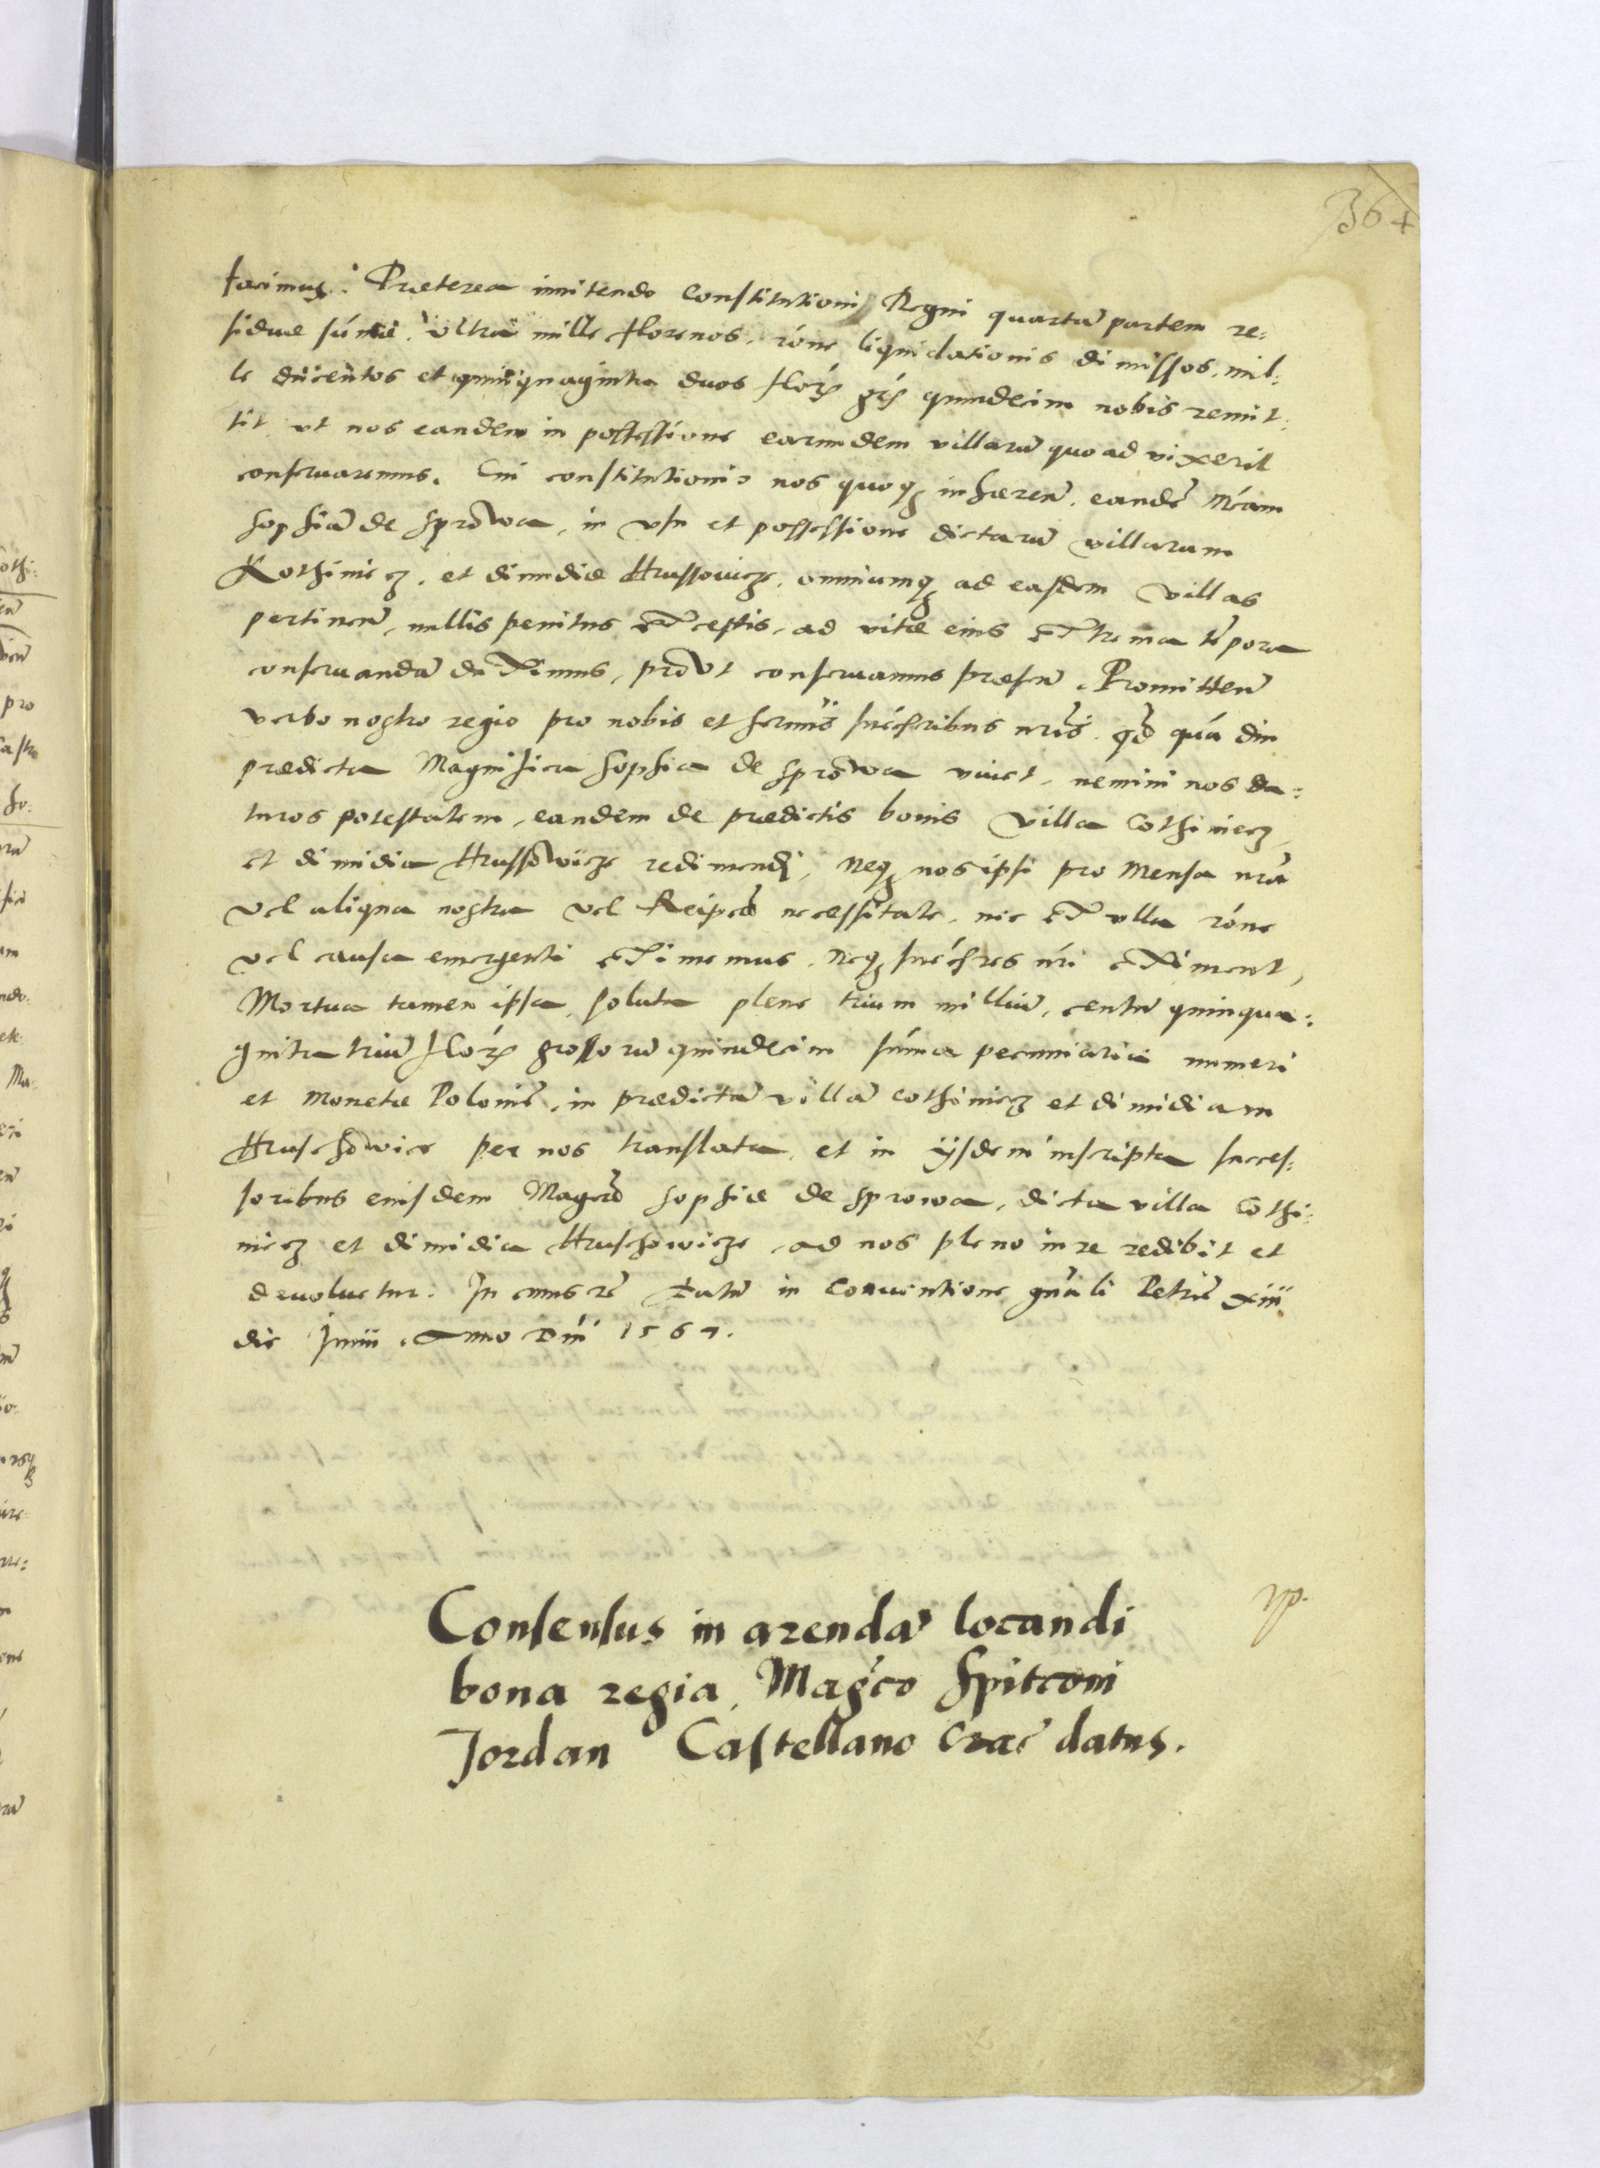 364
facimus. Præterea innitendo Constitutioni Regni quartã partem re:
siduæ sum̃æ. Vltra mille florenos, rõne liquidationis dimissos, mil:
le ducentos et quinquaginta duos flor̃ gr̃ quindecim nobis remit:
tit vt nos eandem in possessione earundem villarũ quoad vixerit
conseruaremus. Cui constitutioni nos quoq̃ inhæreñ. eandẽ M̃cam
Sophiã de Sprowa, in vsu et possessione dictarũ villarum
Kothiniecz, et dimidiæ Hrussowicze, omniumq̃ ad easdem villas
pertineñ, nullis penitus exceptis, ad vitæ eius extrema tẽpora
conseruandã duximus, provt conseruamus præseñ. Promitteñ
verbo nostro regio pro nobis et sereñis suc̃csoribus nr̃is. qd̃ quã diu
prædicta Magnifica Sophia de Sprowa viuet, nemini nos da:
turos potestatem, eandem de prædictis bonis villa Cothiniecz,
et dimidia Hrussowicze redimendi, neq̃ nos ipsi pro Mensa nr̃a
vel aliqua nostra vel Reipcæ̃ necessitate, nec ex vlla rõne
vel causa emergenti eximemus. neq̃ suc̃csores nr̃i eximent,
Mortua tamen ipsa, soluta plene trium milliũ, centũ quinqua:
ginta triũ flor̃ grossorũ quindecim sum̃a pecuniaria numeri
et monetæ Poloniẽ, in prædictã villã Cothiniecz et dimidiam
Hruschowice per nos translata, et in ijsdem inscripta succes:
soribus eiusdem Magcæ̃ Sophiæ de Sprowa, dicta villa Cothi:
niecz et dimidia Hruschowicze, ad nos pleno iure redibit et
deuoluetur. In cuius rẽ Datũ in Conuentione gñali Petricẽ xiii
die Junii. Anno Dñi 1567.
Consensus in arendã locandi
bona regia, Mag̃co Spitconi
Jordan Castellano Crac̃ datus.